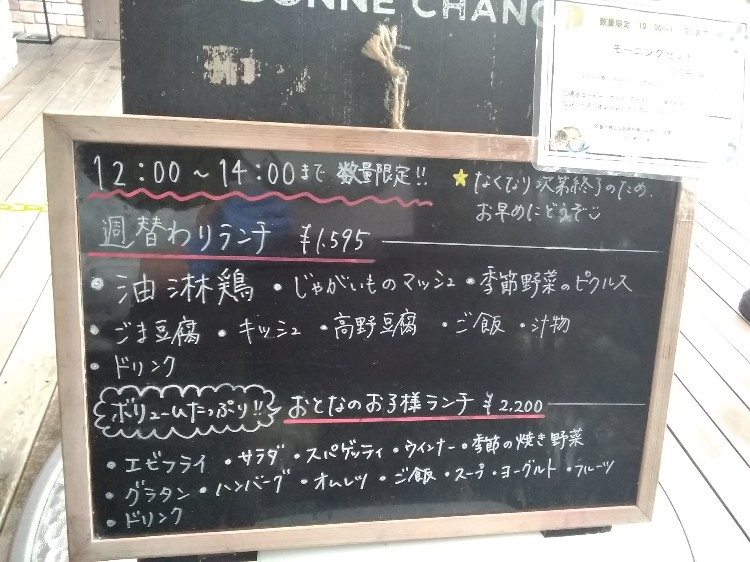 BONNE CHANC
数量限定
モーニングセット
12:00～14:00まで 数量限定!!
★なくなり次第終了のため、
お早めにどうぞ
週替わりランチ ¥1.595
・油淋鶏 ・じゃがいものマッシュ ・季節野菜のピクルス
・ごま豆腐 ・キッシュ ・高野豆腐 ・ご飯 ・汁物
・ドリンク
ボリュームたっぷり!! おとなのお子様ランチ ¥2.200
・エビフライ ・サラダ ・スパゲッティ ・ウインナー ・季節の焼き野菜
・グラタン ・ハンバーグ ・オムレツ ・ご飯 ・スープ ・ヨーグルト ・フルーツ
・ドリンク